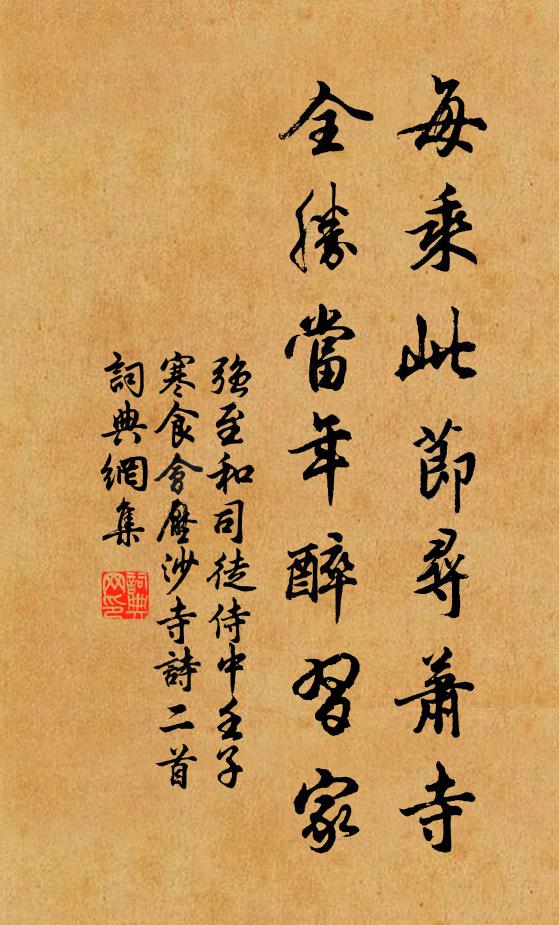 每乘此節尋蕭寺
全勝當年醉習家
強至和司徒侍中壬子
寒食會壓沙寺詩二首
詞典網集
詞典
網印